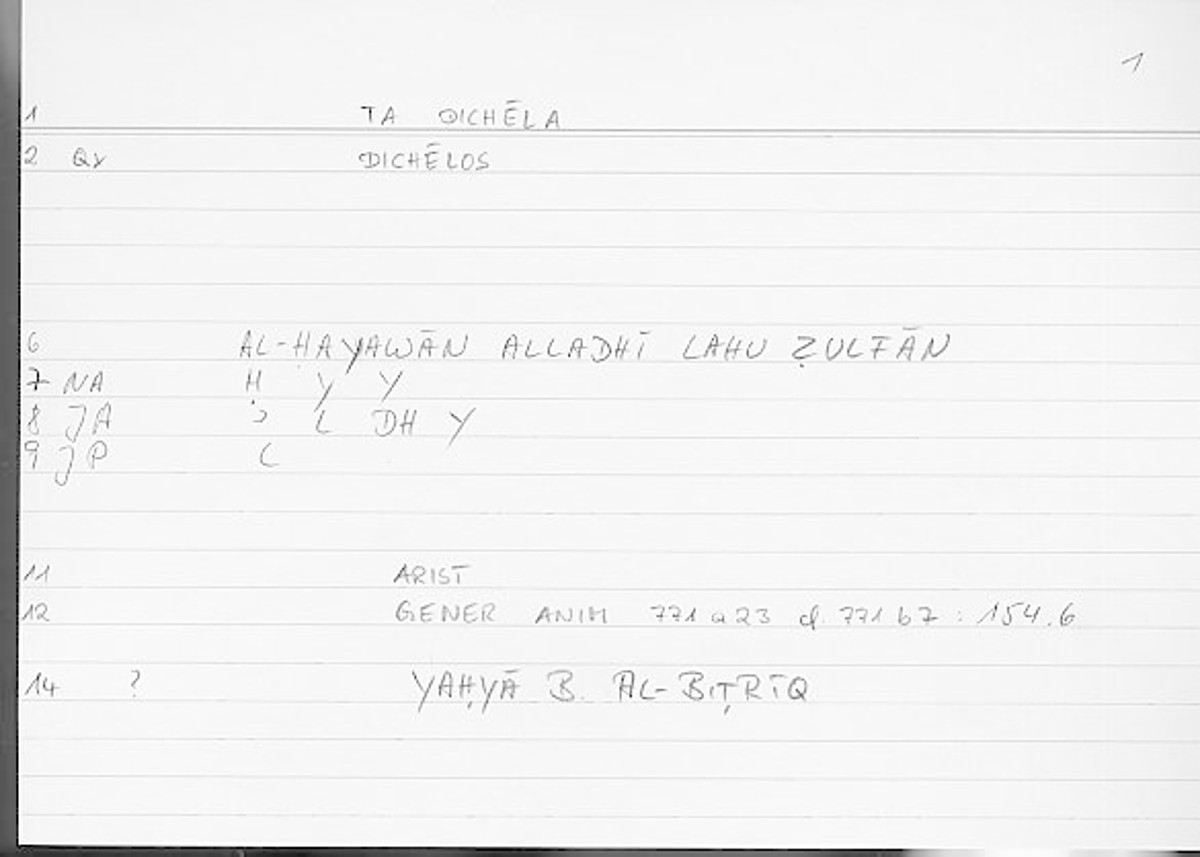 1
1 TA DICHĒLA
2 Qy DICHĒLOS
6 AL-ḤAYAWĀN ALLADHĪ LAHU ẒULFĀN
7 NA Ḥ Y Y
8 JA ʾ L DH Y
9 JP L
11 ARIST
12 GENER ANIM 771 a 23 cf. 771 b 7 : 154.6
14 ? YAḤYĀ B. AL-BIṬRĪQ